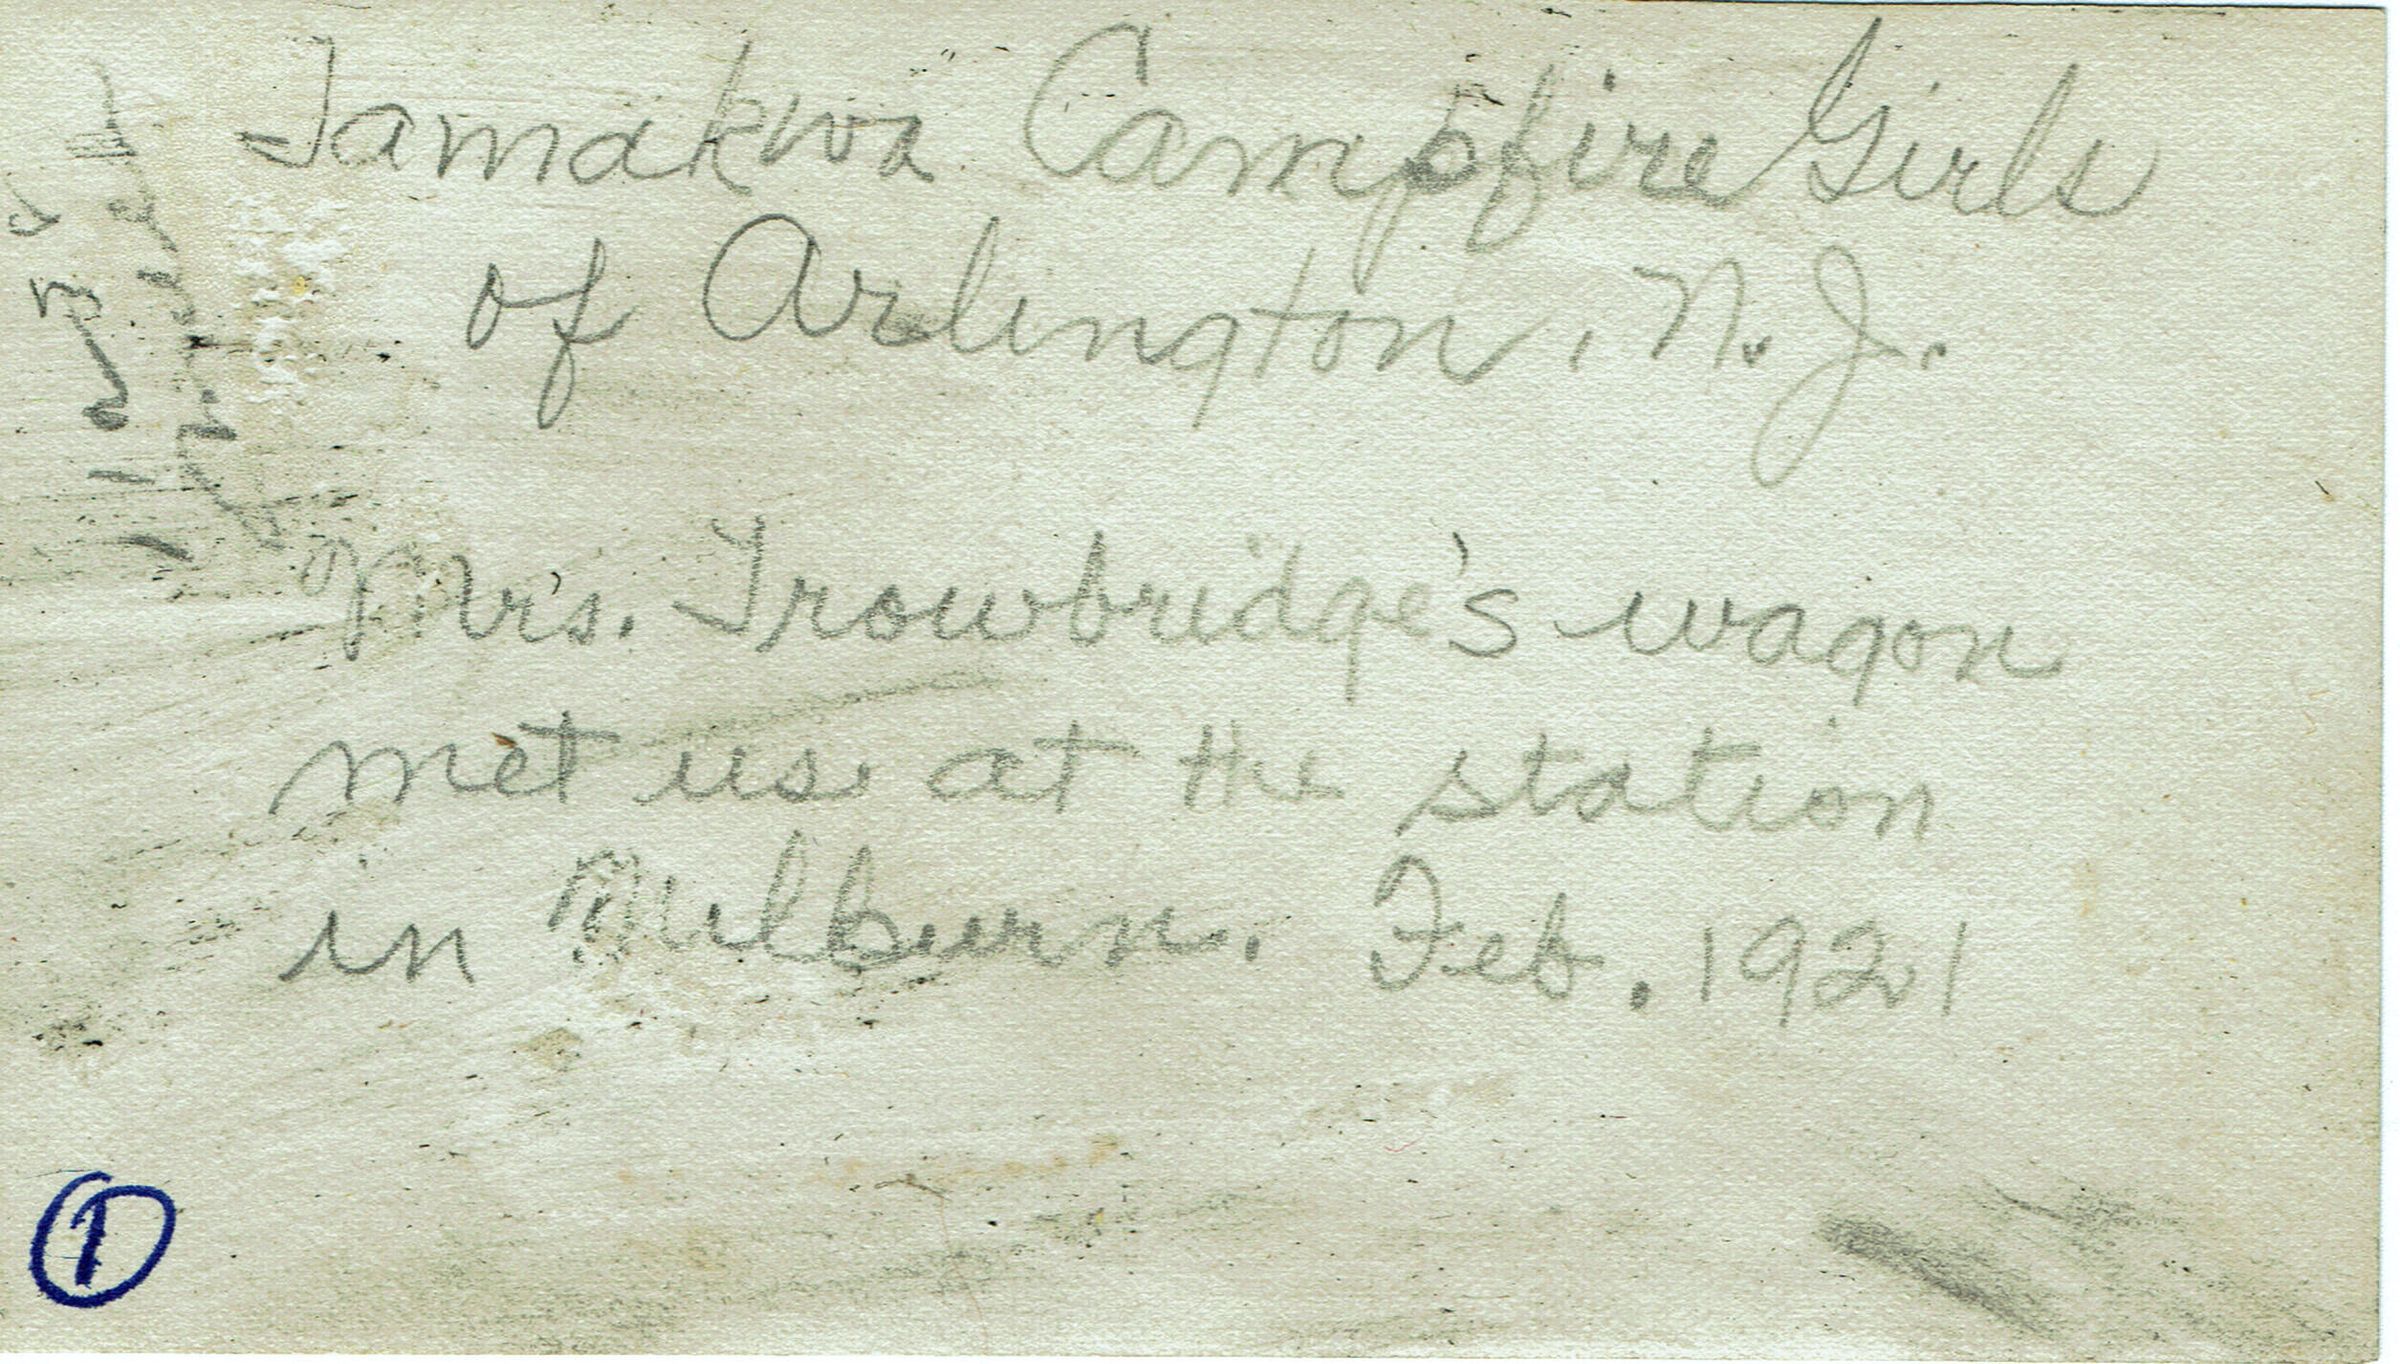 Tamakwa Campfire Girls
of Arlington, N.J.
Mrs. Trowbridge's wagon
met us at the station
in Milburn. Feb. 1921
1